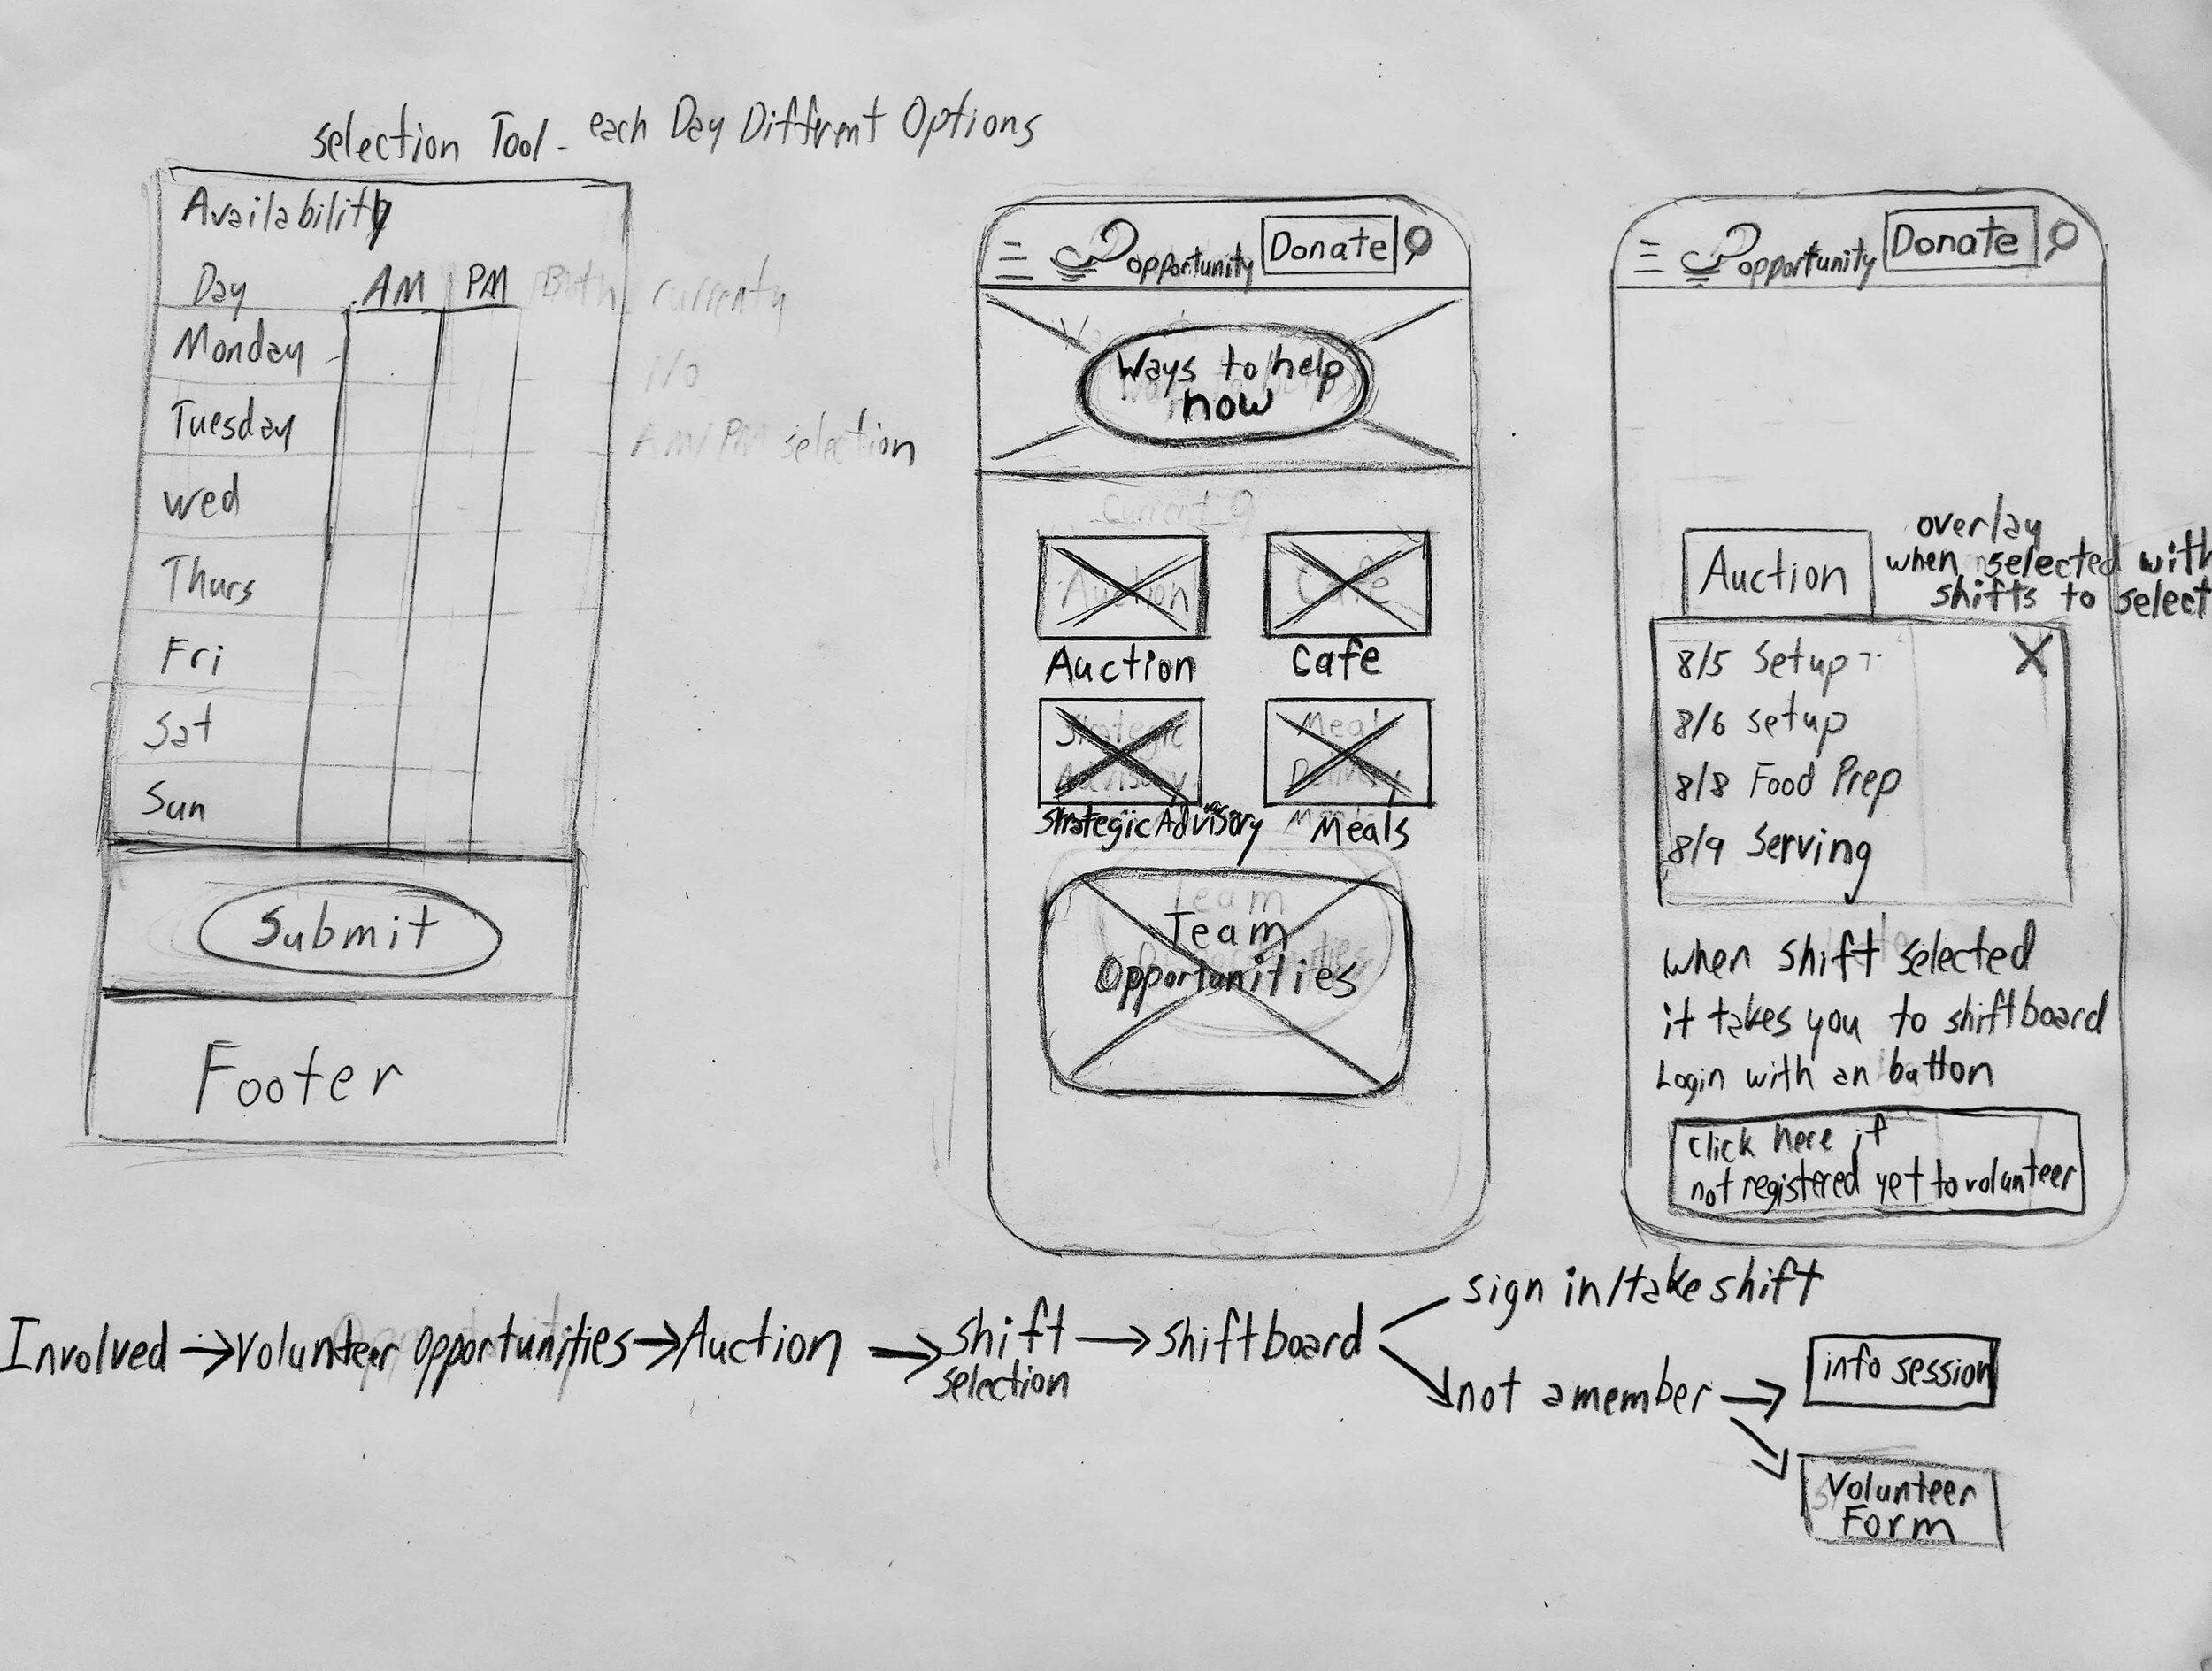 selection Tool - each Day Different Options
Availability
Day AM PM Both
Monday
Tuesday
wed
Thurs
Fri
Sat
Sun
Submit
Footer
currently
AM/PM selection
opportunity Donate
Ways to help
now
Auction
Cafe
Auction
Cafe
Strategic
Advisory
Meal
Strategic Advisory
Meals
Team
Team
Opportunities
opportunity Donate
overlay
when selected with
shifts to select
Auction
8/5 Setup
X
8/6 setup
8/8 Food Prep
8/9 Serving
when shift selected
it takes you to shiftboard
Login with an button
click here if
not registered yet to volunteer
Involved → Volunteer opportunities → Auction → shift selection → shiftboard
sign in/take shift
not a member →
info session
Volunteer
Form